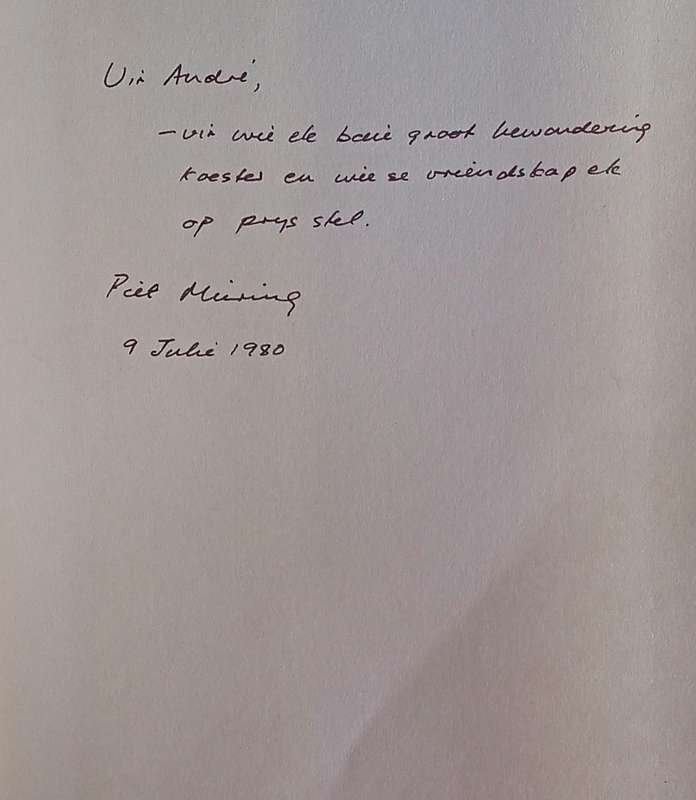 Vir André,
– vir wie ek baie groot bewondering
koester en wie se vriendskap ek
op prys stel.
Piet Meiring
9 Julie 1980